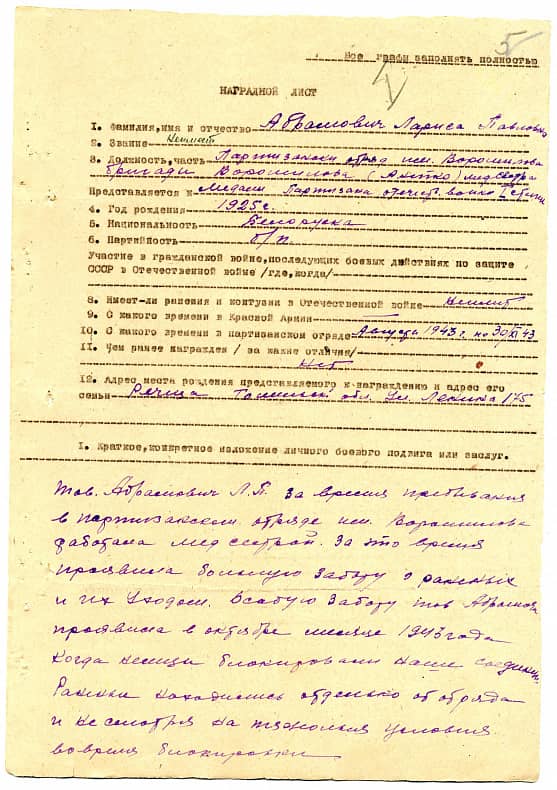 5
Все графы заполнять полностью
V
НАГРАДНОЙ ЛИСТ
1. Фамилия, имя и отчество Абрамович Лариса Павловна
2. Звание
3. Должность, часть Партизански отряд им. Ворошилова
бригады Ворошилова медсестра
Представляется к Медали Партизана отечеств. войны I степени
4. Год рождения 1925 г.
5. Национальность Белоруска
6. Партийность б/п
Участие в гражданской войне, последующих боевых действиях по защите
СССР в Отечественной войне /где, когда/
8. Имеет-ли ранения и контузии в Отечественной войне Не имеет
9. С какого времени в Красной Армии
10. С какого времени в партизанском отряде Августа 1943 г. по 30/XI 43
11. Чем ранее награжден / за какие отличия/
Нет
12. Адрес места рождения представляемого к награждению и адрес его
семьи Речица обл. ул. Ленина 175
I. Краткое, конкретное изложение личного боевого подвига или заслуг.
Тов. Абрамович Л.П. за время пребывания
в партизанском отряде им. Ворошилова
работала мед сестрой. За это время
проявила большую заботу о раненых
и их уходом. Особую заботу тов Абрамович
проявила в октябре месяце 1943 года
когда немцы блокировали наше соединен.
Ранены находились отдельно от отряда
и не смотря на тяжолыя условия
во время блокировки